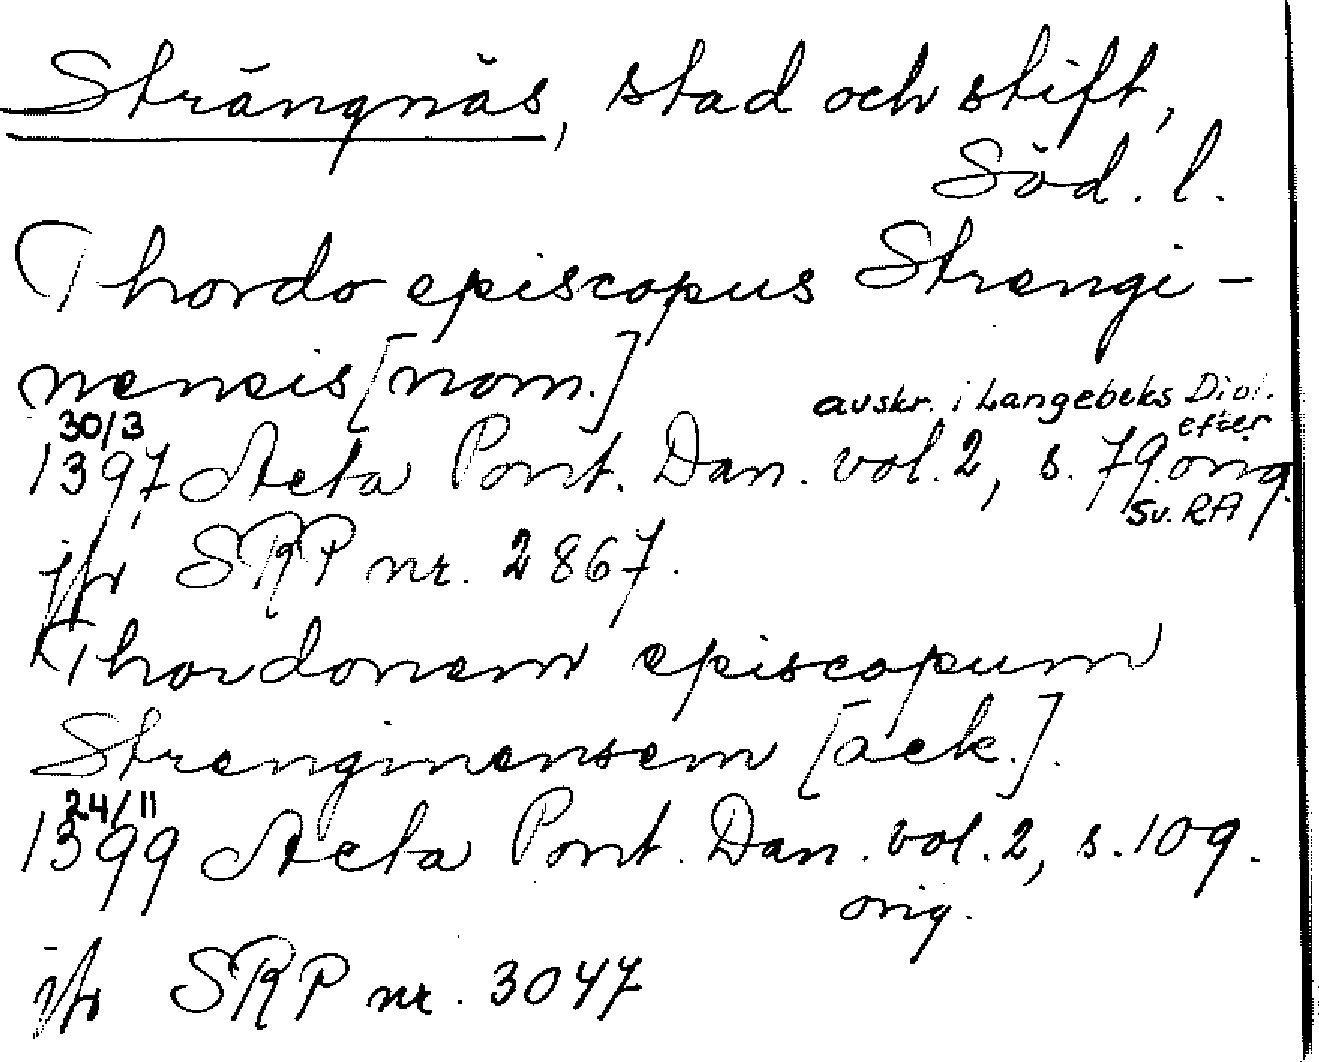 Strängnäs, stad och stift,
Söd. l.
Thordo episcopus Strengi-
nensis [nom.]
avskr. i Langebeks Dipl.
efter
30/3
1397 Acta Pont. Dan. vol. 2, s. 79. orig.
Sv. RA
jfr SRP nr. 2867.
Thordonem episcopum
Strenginensem [ack.].
24/11
1399 Acta Pont. Dan. vol. 2, s. 109.
orig.
jfr SRP nr. 3047